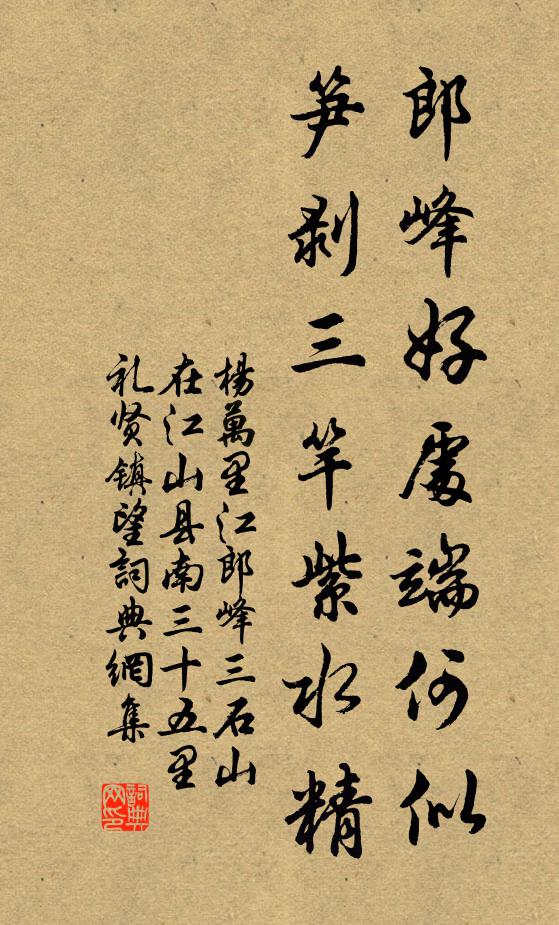 郎峰好處端何似
笋剥三竿紫水精
楊萬里江郎峰三石山
在江山县南三十五里
礼贤镇望詞典網集
詞典
网印